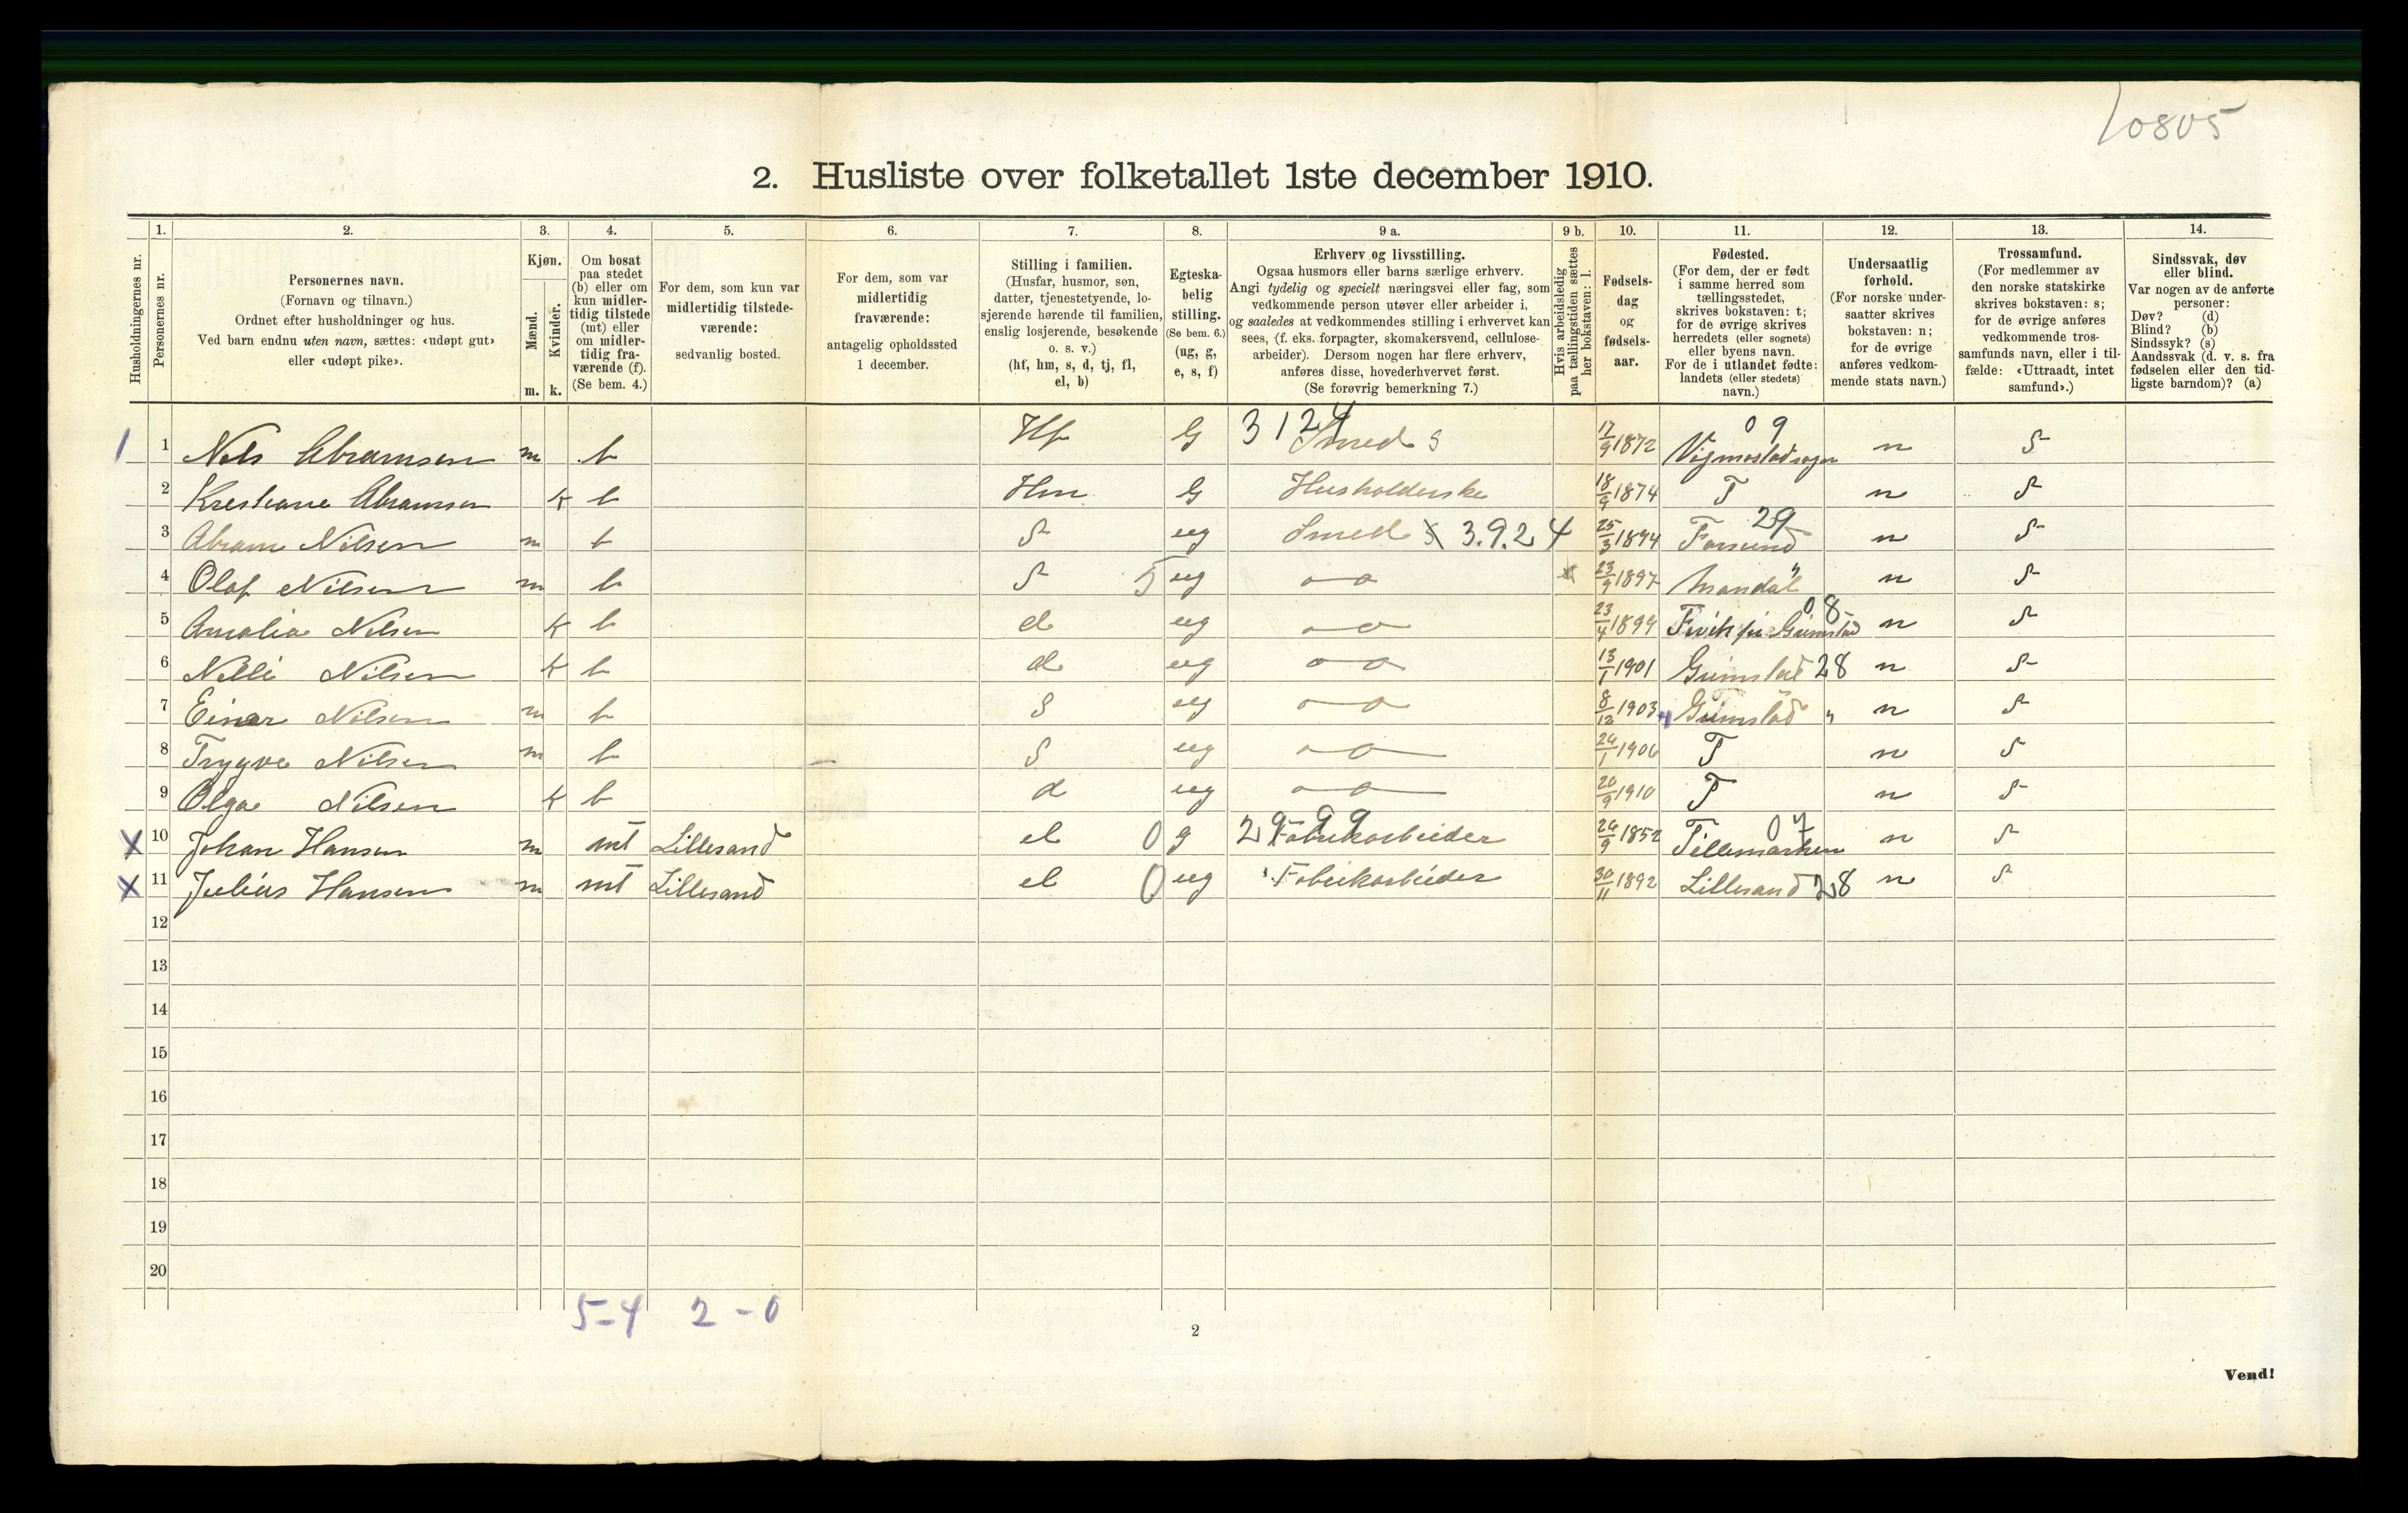 10805
2. Husliste over folketallet 1ste december 1910.
Husholdningernes nr.
1. Personernes nr.
2. Personernes navn.
(Fornavn og tilnavn.)
Ordnet efter husholdninger og hus.
Ved barn endnu uten navn, sættes: «udøpt gut»
eller «udøpt pike».
3. Kjøn.
Mænd. m.
Kvinder. k.
4. Om bosat
paa stedet
(b) eller om
kun midler-
tidig tilstede
(mt) eller
om midler-
tidig fra-
værende (f).
(Se bem. 4.)
5. For dem, som kun var
midlertidig tilstede-
værende:
sedvanlig bosted.
6. For dem, som var
midlertidig
fraværende:
antagelig opholdssted
1 december.
7. Stilling i familien.
(Husfar, husmor, søn,
datter, tjenestetyende, lo-
sjerende hørende til familien,
enslig losjerende, besøkende
o. s. v.)
(hf, hm, s, d, tj, fl,
el, b)
8. Egteska-
belig
stilling.
(Se bem. 6.)
(ug, g,
e, s, f)
9 a. Erhverv og livsstilling.
Ogsaa husmors eller barns særlige erhverv.
Angi tydelig og specielt næringsvei eller fag, som
vedkommende person utøver eller arbeider i,
og saaledes at vedkommendes stilling i erhvervet kan
sees, (f. eks. forpagter, skomakersvend, cellulose-
arbeider). Dersom nogen har flere erhverv,
anføres disse, hovederhvervet først.
(Se forøvrig bemerkning 7.)
9 b. Hvis arbeidsledig
paa tællingstiden sættes
her bokstaven: l.
10. Fødsels-
dag
og
fødsels-
aar.
11. Fødested.
(For dem, der er født
i samme herred som
tællingsstedet,
skrives bokstaven: t;
for de øvrige skrives
herredets (eller sognets)
eller byens navn.
For de i utlandet fødte:
landets (eller stedets)
navn.)
12. Undersaatlig
forhold.
(For norske under-
saatter skrives
bokstaven: n;
for de øvrige
anføres vedkom-
mende stats navn.)
13. Trossamfund.
(For medlemmer av
den norske statskirke
skrives bokstaven: s;
for de øvrige anføres
vedkommende tros-
samfunds navn, eller i til-
fælde: «Uttraadt, intet
samfund».)
14. Sindssvak, døv
eller blind.
Var nogen av de anførte
personer:
Døv? (d)
Blind? (b)
Sindssyk? (s)
Aandssvak (d. v. s. fra
fødselen eller den tid-
ligste barndom)? (a)
1 1 Nils Abramsen m b Hf G 3124 Smed s 17/9 1872 09 Vigmostad sogn n S
2 Krestiane Abramsen k b Hm G Husholderske 18/9 1874 T n S
3 Abram Nilsen m b S ug Smed 3.9.24 25/3 1894 29 Farsund n S
4 Olaf Nilsen m b S 5 ug -o- 23/9 1897 Mandal " n S
5 Amalia Nilsen k b d ug -o- 23/4 1899 08 Fevik pr Grimstad n S
6 Nelli Nilsen k b d ug -o- 13/1 1901 Grimstad 28 n S
7 Einar Nilsen m b S ug -o- 8/12 1903 Grimstad " n S
8 Trygve Nilsen m b S ug -o- 24/1 1906 T n S
9 Olga Nilsen k b d ug -o- 20/9 1910 T n S
X 10 Johan Hansen m mt Lillesand el 0 g 2999 Fabrikarbeider 24/9 1852 07 Tellemarken n S
X 11 Julius Hansen m mt Lillesand el 0 ug Fabrikarbeider 30/11 1892 Lillesand 28 n S
12
13
14
15
16
17
18
19
20
5-4 2-0
2
Vend!